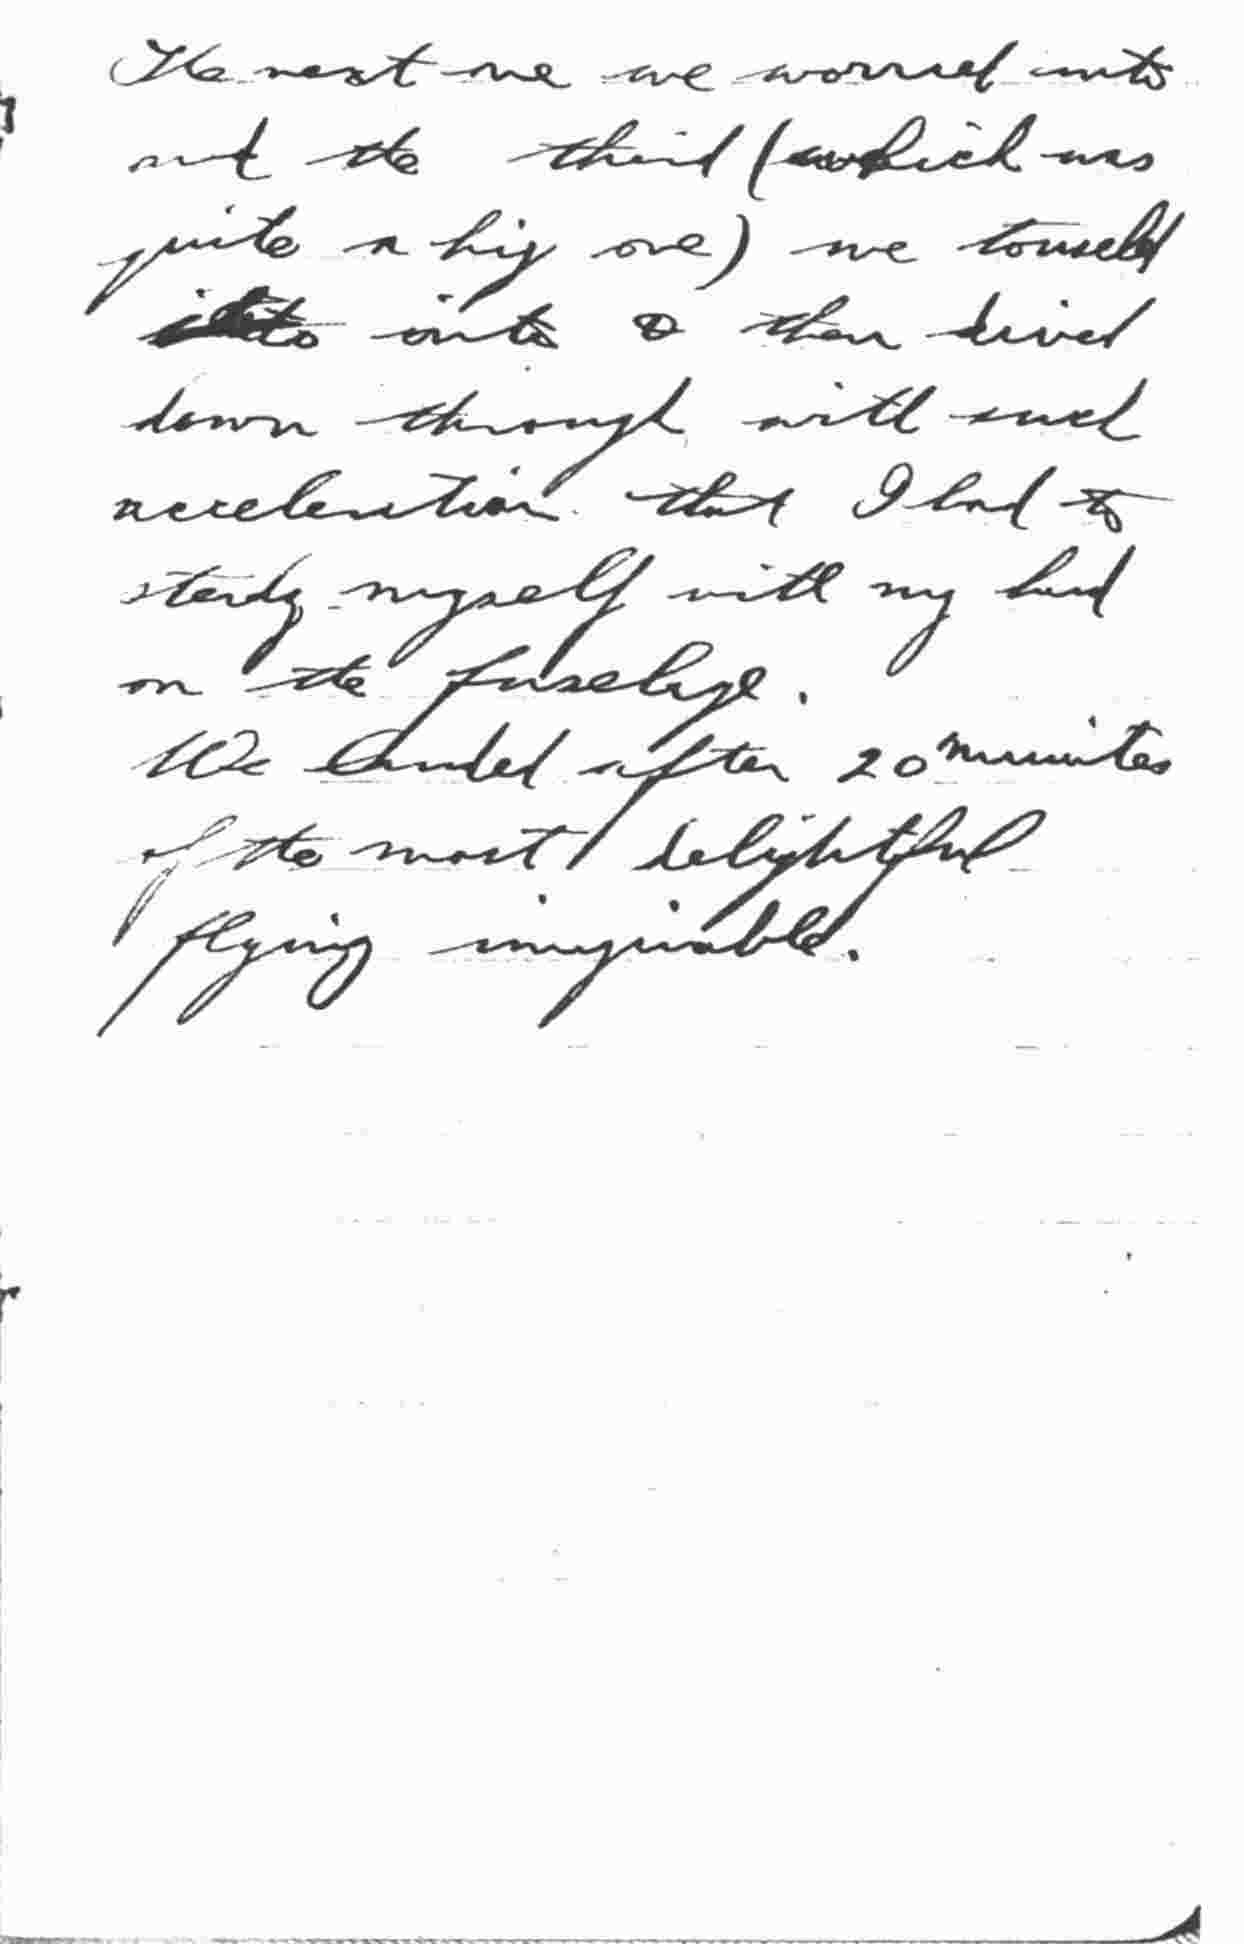 The next one we wormed into
and the third (which was
quite a big one) we touched
onto & then dived
down through with such
acceleration that I had to
steady myself with my hand
on the fuselage.
We landed after 20 minutes
of the most delightful
flying imaginable.